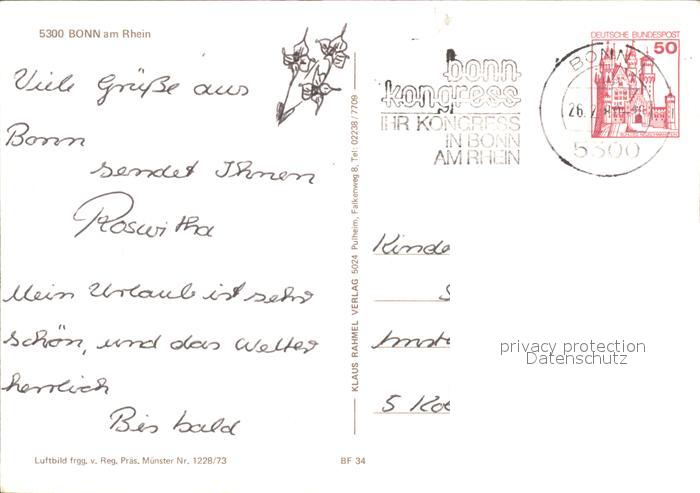 5300 BONN am Rhein
Viele Grüße aus
Bonn
sendet Ihnen
Roswitha
Mein Urlaub ist sehr
schön, und das Wetter
herrlich
Bis bald
Luftbild frgg. v. Reg. Präs. Münster Nr. 1228/73
BF 34
KLAUS RAHMEL VERLAG 5024 Pulheim, Falkenweg 8, Tel: 02238/7709
bonn
kongress
IHR KONGRESS
IN BONN
AM RHEIN
BONN
26.2
5300
DEUTSCHE BUNDESPOST
50
Kinde
5
privacy protection
Datenschutz